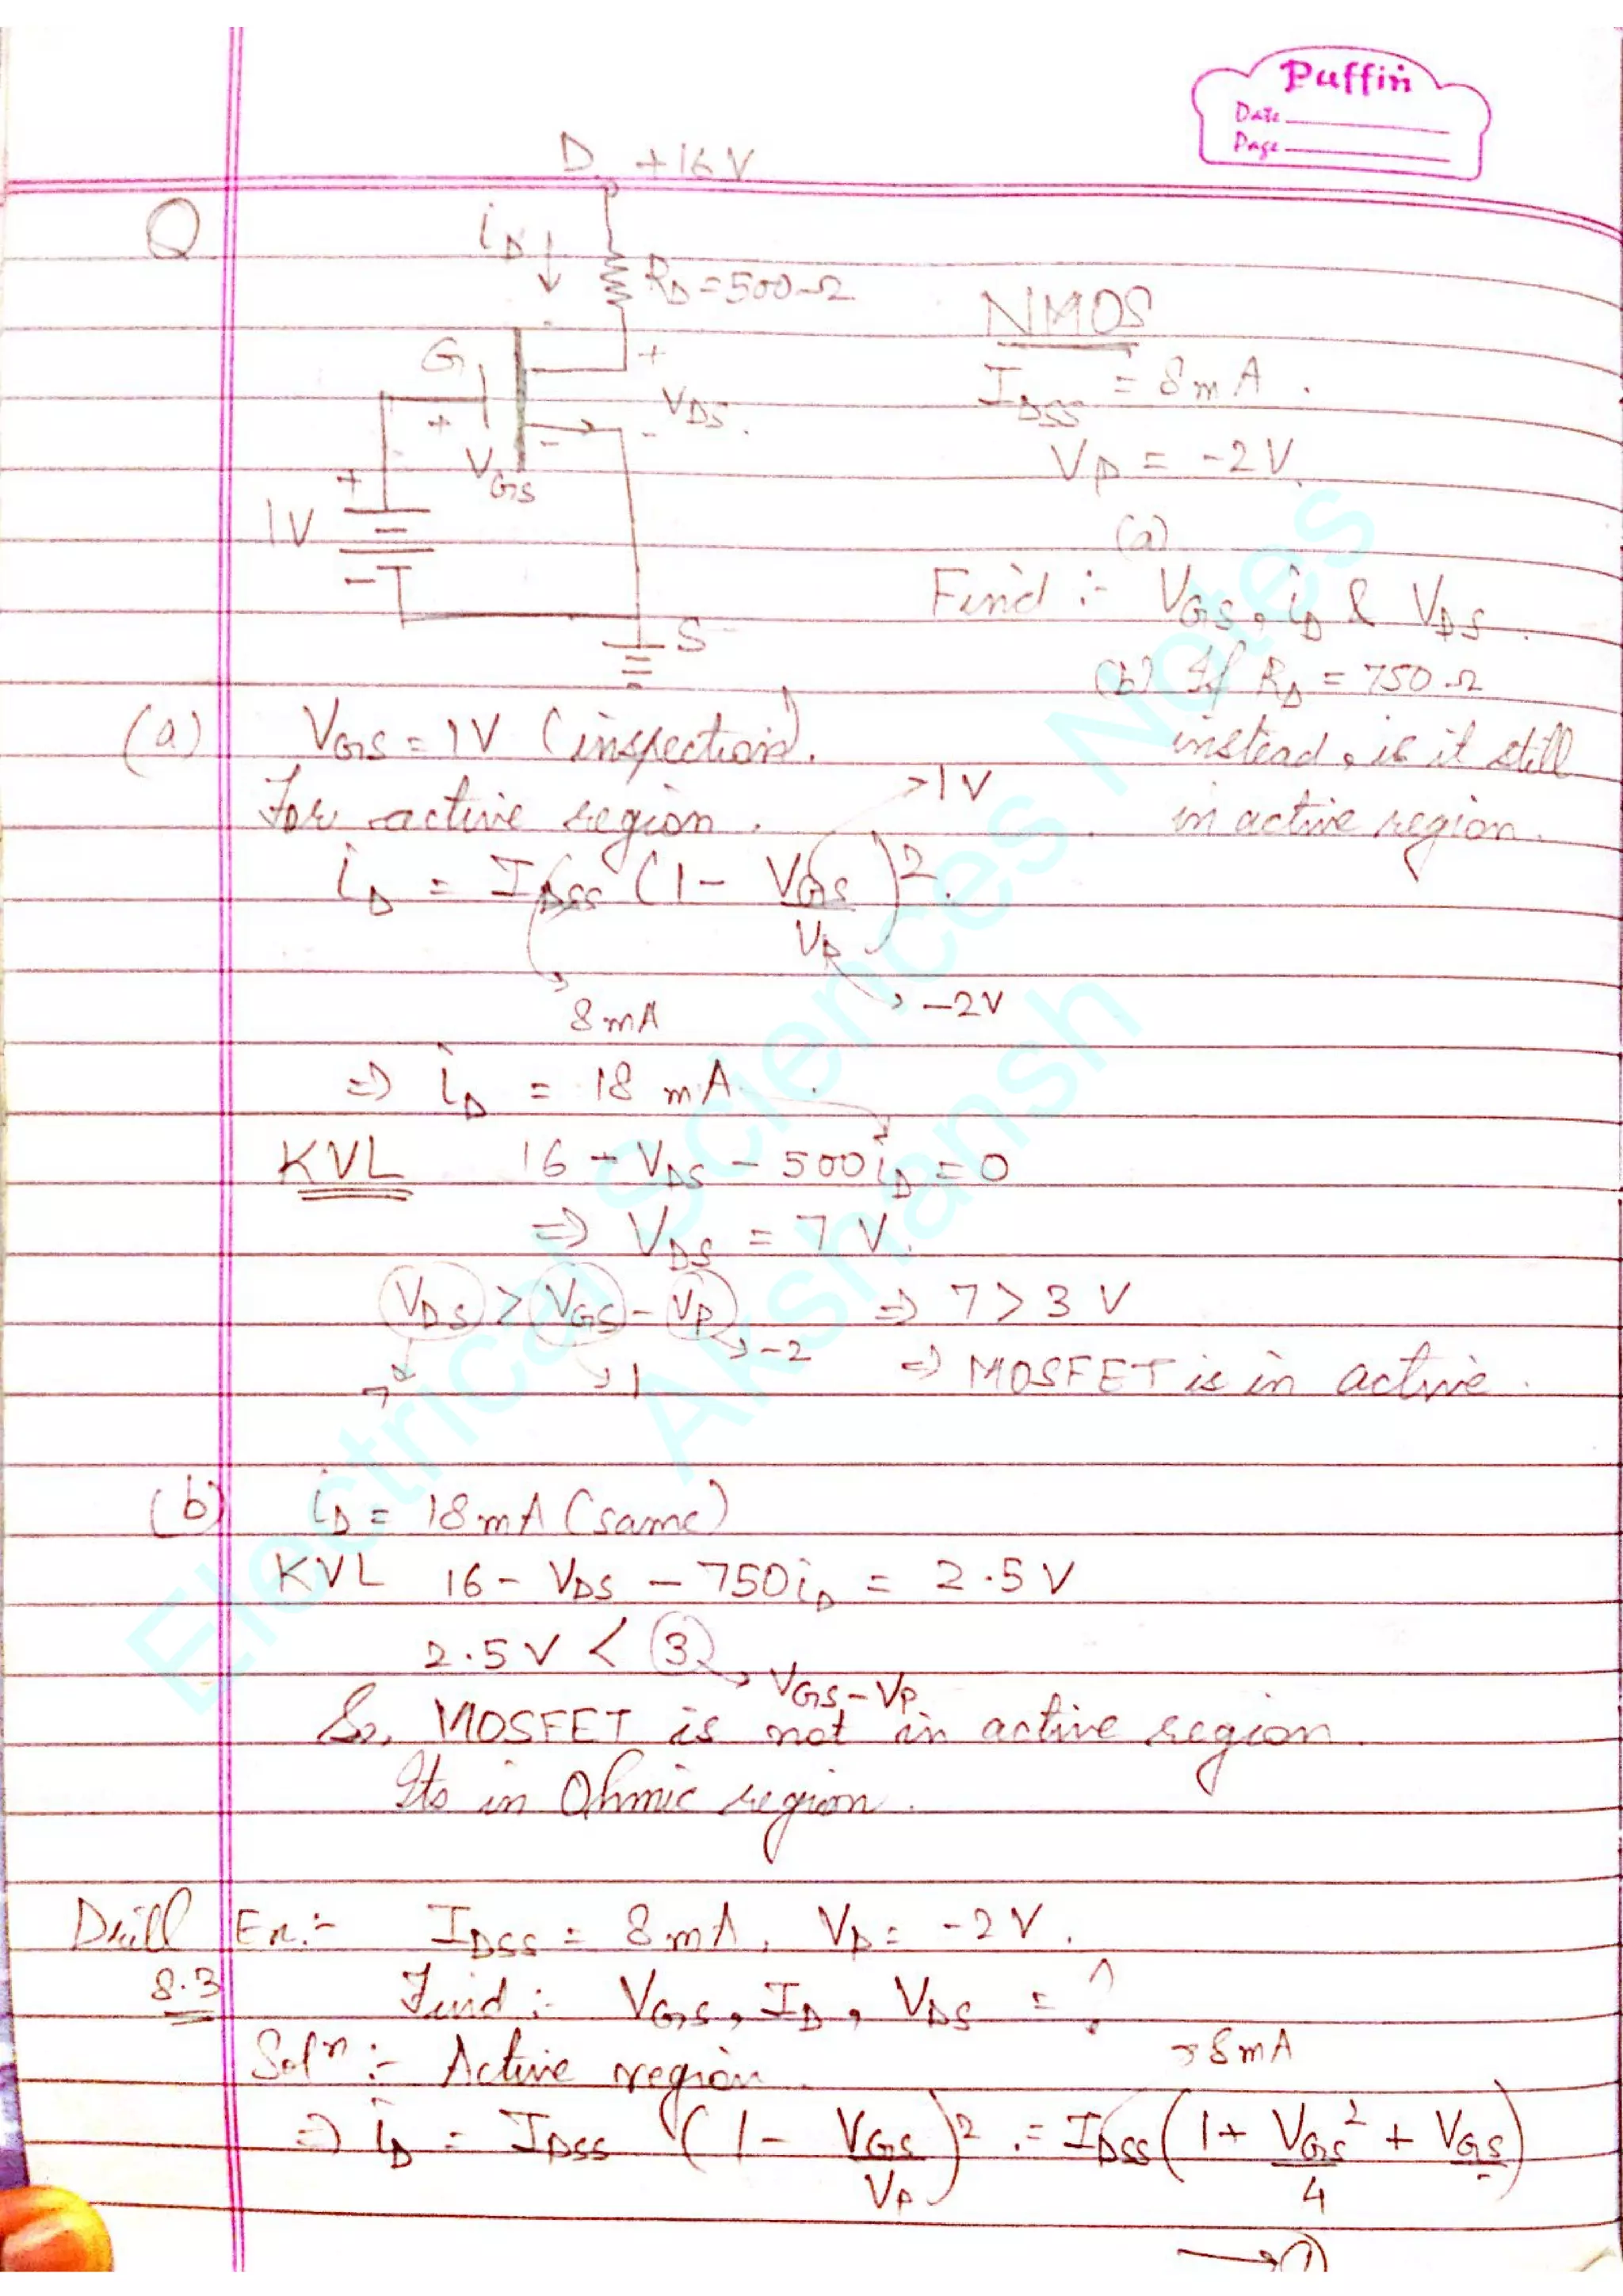 Puffin
Date
Page
D +16V
Q
iD ↓
RD = 500Ω
NMOS
G
+
IDSS = 8mA.
+ VDS -
VP = -2V
+ VGS -
1V
(a)
Find :- VGS, iD & VDS
S
(b) If RD = 750Ω
instead, is it still
in active region.
(a) VGS = 1V (inspection).
→ 1V
For active region.
iD = IDSS (1 - VGS/VP)².
8mA
→ -2V
⇒ iD = 18 mA
KVL 16 - VDS - 500iD = 0
⇒ VDS = 7 V.
VDS > VGS - VP ⇒ 7 > 3 V
7 1 -2 ⇒ MOSFET is in active.
(b) iD = 18mA (same)
KVL 16 - VDS - 750iD = 2.5V
2.5V < 3 → VGS - VP
So, MOSFET is not in active region.
Its in Ohmic region.
Drill Ex:- IDSS = 8mA, VP = -2V.
8.3 Find :- VGS, ID, VDS = ?
Solⁿ :- Active region.
→ 8mA
⇒ iD = IDSS (1 - VGS/VP)² = IDSS (1 + VGS²/4 + VGS)
→ ①
Electrical Sciences Notes
Akshansh